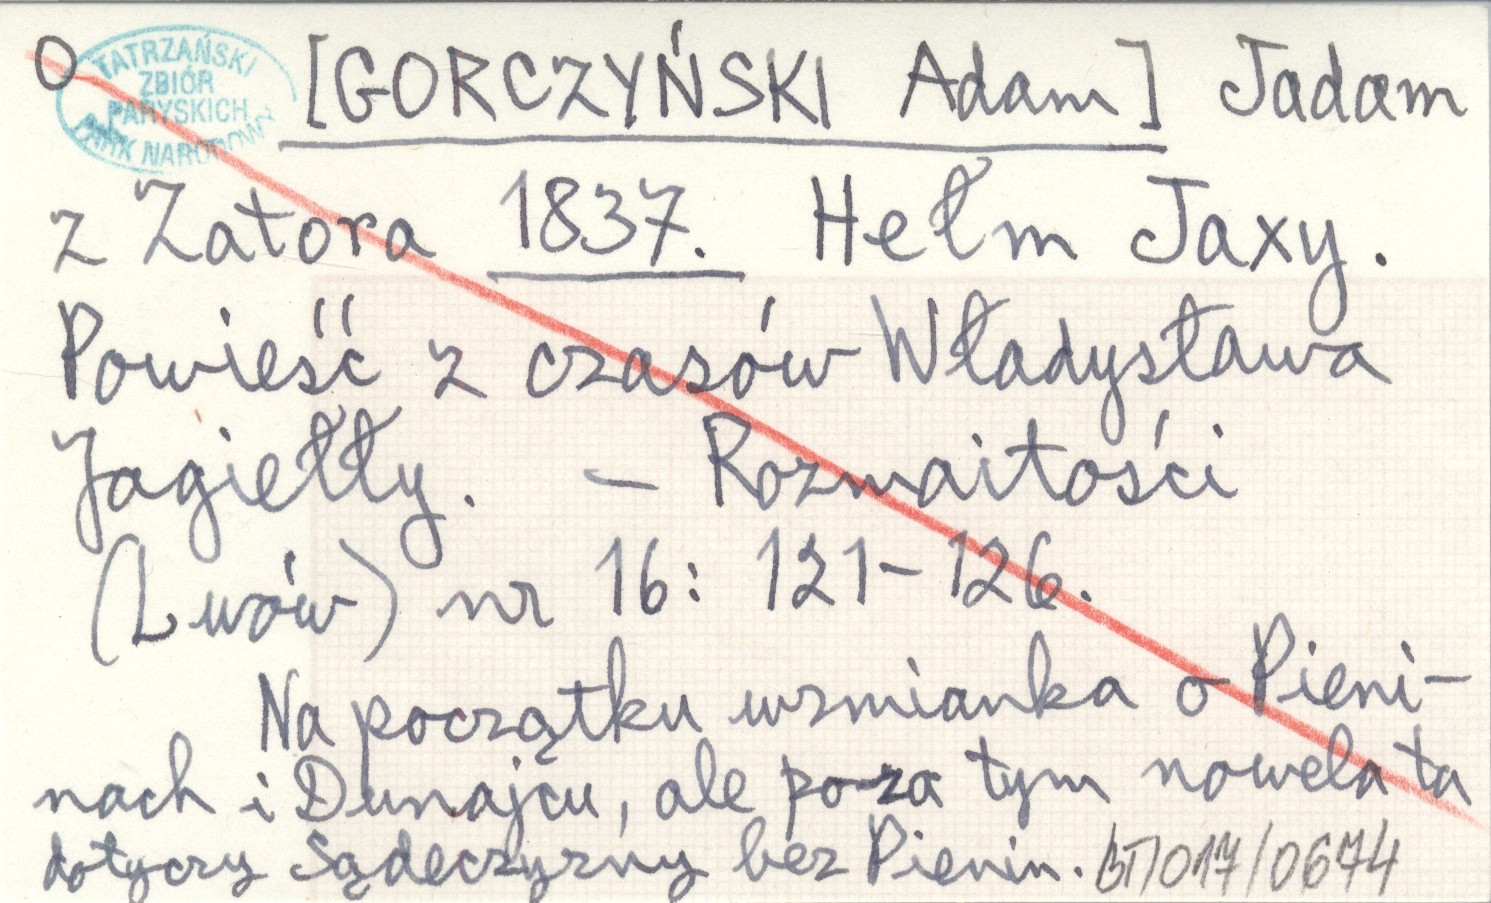 O
TATRZAŃSKI
ZBIÓR
PARYSKICH
PARK NARODOWY
[GORCZYŃSKI Adam] Jadam
z Zatora 1837. Hełm Jaxy.
Powieść z czasów Władysława
Jagiełły. – Rozmaitości
(Lwów) nr 16: 121–126.
Na początku wzmianka o Pieni-
nach i Dunajcu, ale poza tym nowela ta
dotyczy Sądeczyzny bez Pienin. BT/017/0674